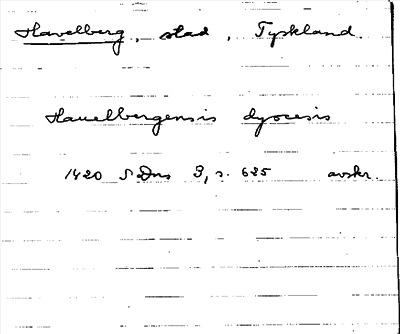 Havelberg, stad, Tyskland.
Hauelbergensis dyocesis
1420 SDns 3, s. 685 avskr.